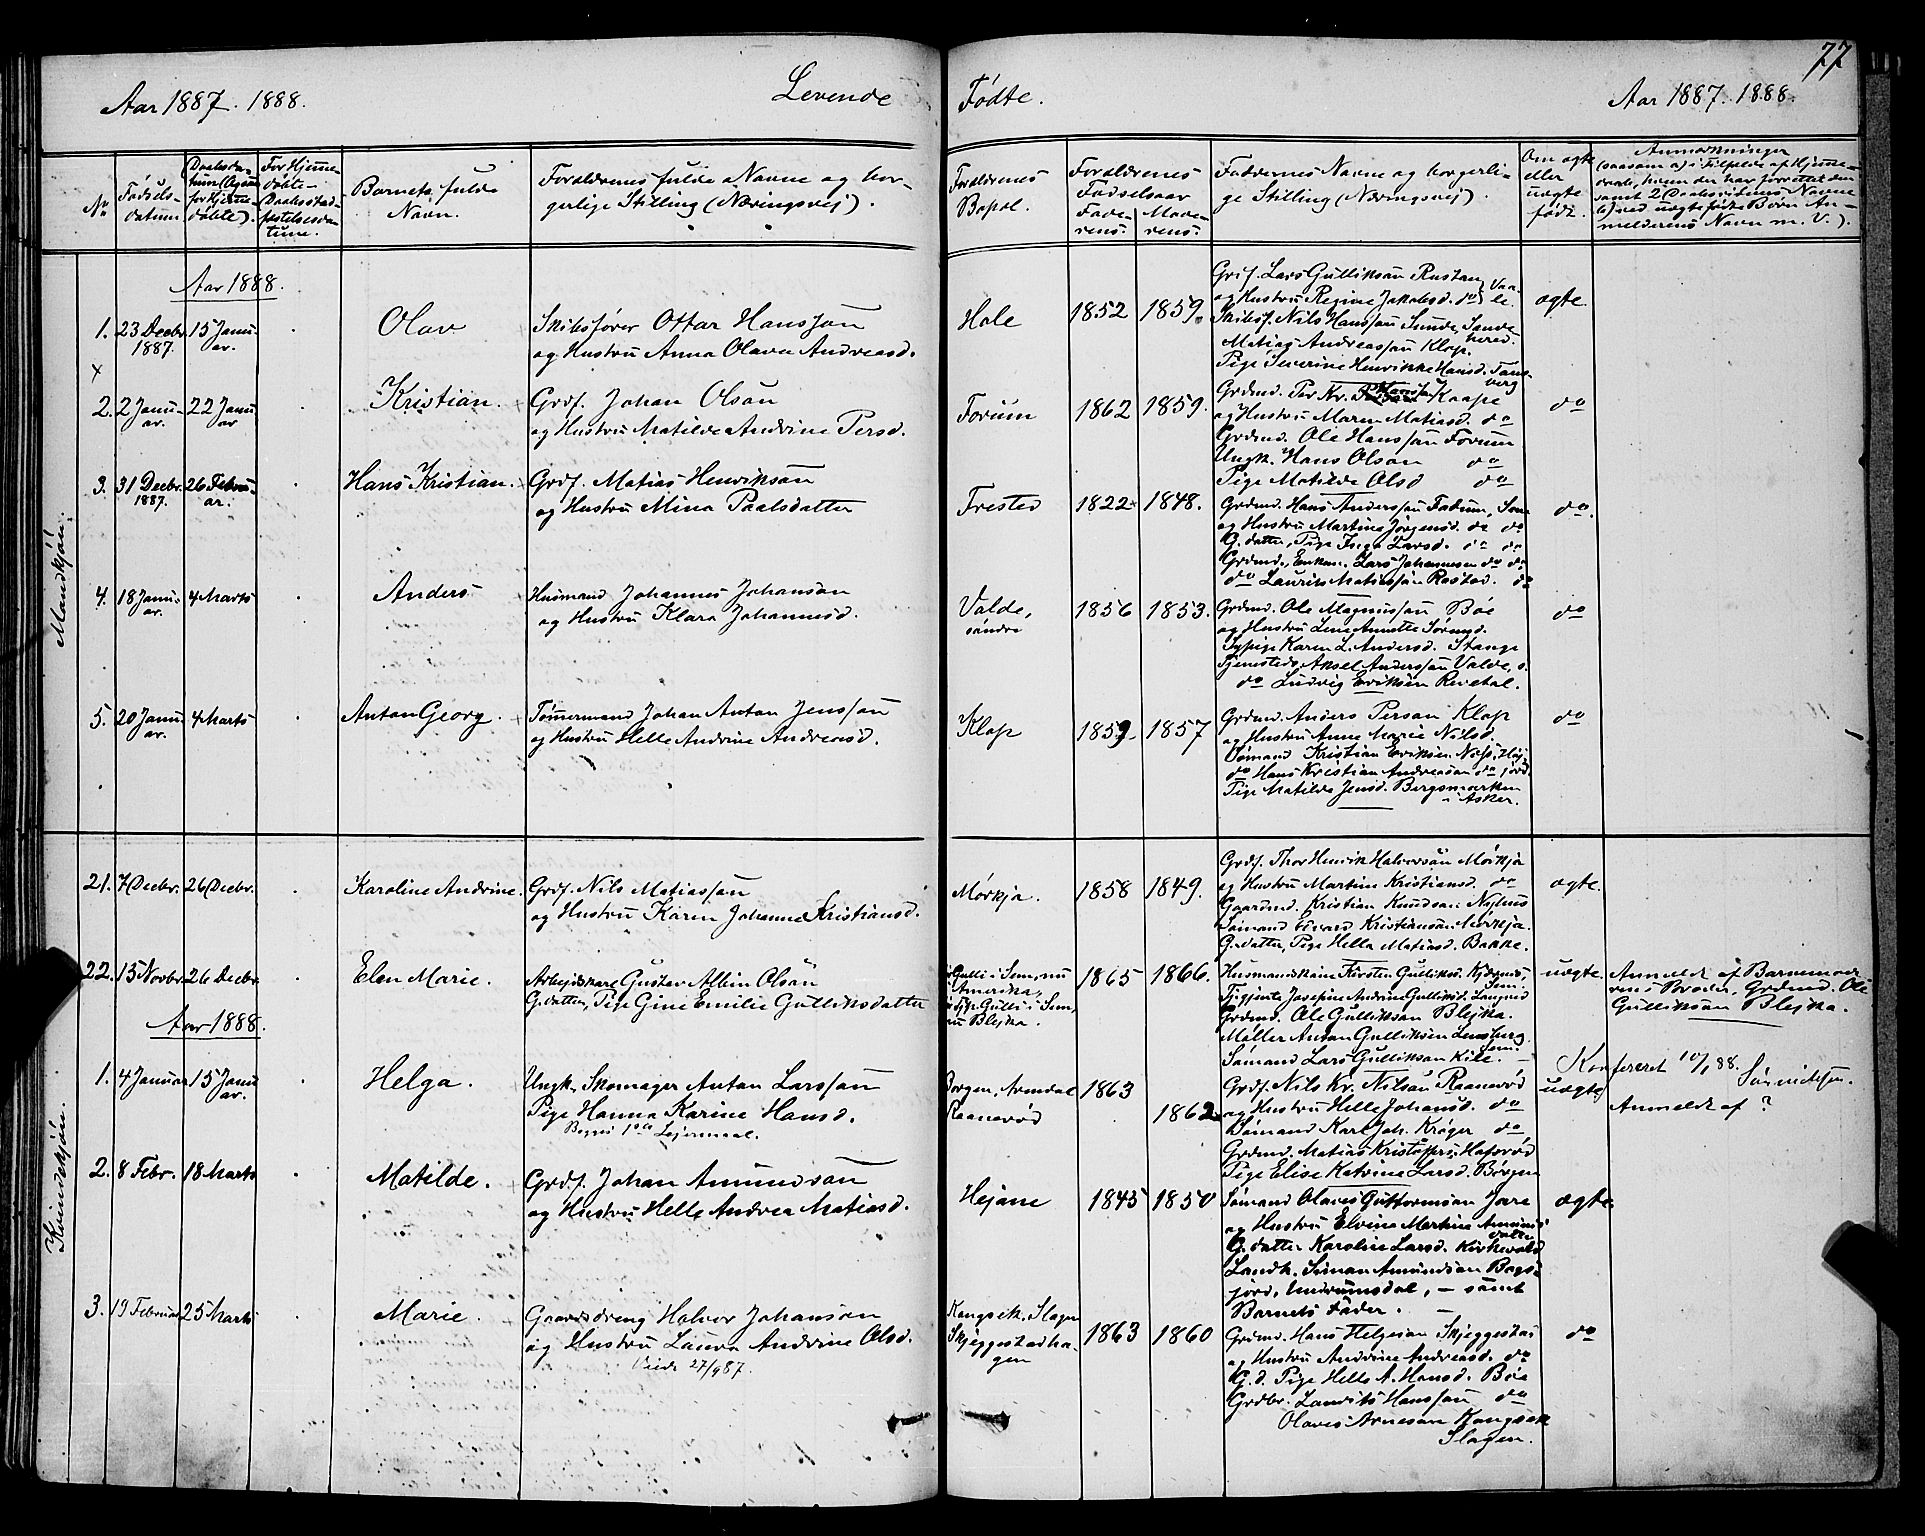 77
Aar 1887. 1888.
Levende Fødte.
Aar 1887. 1888.
No
Fødsels-
datum
Daabsda-
tum (Ogsaa
for hjemme-
døbte).
For Hjemme-
døbte -
Daabsstad-
fæstelsesda-
tum.
Barnets fulde
Navn.
Forældrenes fulde Navne og bor-
gerlige Stilling (Næringsvej).
Forældrenes
Bopæl.
Forældrenes
Fødselsaar
Fade-
rens.
Mode-
rens.
Faddernes Navne og borgerli-
ge Stilling (Næringsvej).
Om ægte
eller
uægte
født.
Anmærkninger
(saasom a) i Tilfælde af Hjemme-
daab, hvem der har forrettet den
samt 2 Daabsvidners Navne
b) ved uægte fødte Børn An-
melderens Navn m. V.).
Mandkjön.
Aar 1888.
1. 23 Decbr. 1887. 15 Janu-
ar.
Olav
Skibsfører Ottar Hanssøn
og Hustru Anna Olava Andreasd.
Hole 1852 1859.
Grdf. Lars Gulliksøn Rustan, Vaa-
og Hustru Regine Jakobsd. do le.
Skibsf. Nils Hanssøn Sunde, Sande-
herred.
Matias Andreassøn Klop.
Pige Severine Henrikke Hansd. Tøns-
berg
ægte
2. 2 Janu-
ar. 22 Janu
ar
Kristian.
Grdf. Johan Olsøn
og Hustru Matilde Andrine Persd.
Forum 1862 1859.
Grdmd. Per Kr. Kaape
og Hustru Maren Matiasd. do
Grdmd. Ole Hanssøn Forum
Ungk. Hans Olsøn do
Pige Matilde Olsd do
do
3. 31 Decbr.
1887. 26 Febru-
ar.
Hans Kristian.
Grdf. Matias Henriksøn
og Hustru Mina Paalsdatter
Trested 1822 1848.
Grdmd. Hans Anderssøn Fadum, Sem
og Hustru Martine Jørgensd. do do
G.datter, Pige Inga Larsd. do do
Grdmd., Enkem. Lars Johannesen do do
do Laurits Matiassøn Rostad. do
do.
4. 18 Janu-
ar. 4 Marts
Anders
Husmand Johannes Johansøn
og Hustru Klara Johannesd.
Valde,
søndre
1856 1853.
Grdmd. Ole Magnussøn Bøe
og Hustru Lene Annette Sørensd.
Sypige Karen L. Andersd. Stange
Tjenested. Aksel Anderssøn Valde, s.
do Ludvig Eriksøn Revetal.
do
5. 20 Janu
ar. 4 Marts
Anton Georg.
Tømmermand Johan Anton Jenssøn
og Hustru Helle Andrine Andreasd.
Klop 1859 1857
Grdmd. Anders Persøn Klop
og Hustru Anne Marie Nilsd.
Sømand Kristian Eriksøn Nes, Høi-
do Hans Kristian Andreasøn do jord.
Pige Matilde Jensd. Bergsmarken
i Asker.
do
Kvindekjön.
21. 7 Decbr. 26 Decbr.
Karoline Andrine.
Grdf. Nils Matiassøn
og Hustru Karen Johanne Kristiansd.
Mørkja. 1858 1849.
Grdf. Thor Henrik Halvorsøn Mørkja
og Hustru Martine Kristiansd. do
Gaardmd. Kristian Knudsøn Nylnes
Sømand Edvard Kristiansøn Mørkja.
G.datter, Pige Helle Matiasd. Bakke.
ægte.
22. 15 Novbr. 26 Decbr.
Elen Marie.
Arbejdskar Gustav Albin Olsøn
G.datter, Pige Gine Emilie Gulliksdatter
Gulli i Sem, nu
i Amerika,
Gulli i Sem,
nu Blejka.
1865 1866.
Husmandskone Kirsten Gulliksd.
Sem.
Tjgjente Josefine Andrine Gulliksd.
Grdmd. Ole Gulliksøn Blejka.
Møller Anton Gulliksøn
Sem.
Sømand Lars Gulliksøn Kile.
uægte.
Anmeldt af Barnemode-
rens Broder, Grdmd. Ole
Gulliksøn Blejka.
Konfereret 10/1 88.
Aar 1888.
1. 4 Januar 15 Janu
ar.
Helga.
Ungk. Skomager Anton Larssøn
Pige Hanna Karine Hansd.
Begges 1ste Lejermaal.
Borgen, Arendal
Raanerød
1863
1862
Grdf. Nils Kr. Nilsøn Raanerød
og Hustru Helle Johansd. do
Sømand Karl Joh. Krøger do
Grdmd. Matias Kristoffers. Haforød
Pige Elise Katrine Larsd. Borgen
uægte
Anmeldt af ?
2. 8 Febr. 18 Marts
Matilde.
Grdf. Johan Amundsøn
og Hustru Helle Andrea Matiasd.
Hejane 1845 1850
Sømand Olaves Guttormsøn Jare
og Hustru Elvine Martine Amunds-
datter
G.datter Karoline Larsd. Kirkevold
Landh. Simon Amundsøn Bogs-
jord, Undrumsdal, - samt
Barnets Fader.
ægte
3. 19 Februar 25 Marts
Marie.
Gaardsdreng Halvor Johansøn
og Hustru Laura Andrine Olsd.
Viede 27/9 87.
Kongseik, Slagen
Skjeggestadha-
gen
1863 1860
Grdmd. Hans Helgesøn Skjeggestad
og Hustru Andrine Andreasd. do
G.d. Pige Helle A. Hansd. Bøe
Grdbr. Laurits Hanssøn do
Olaves Arnesøn Kongseik
Slagen.
do